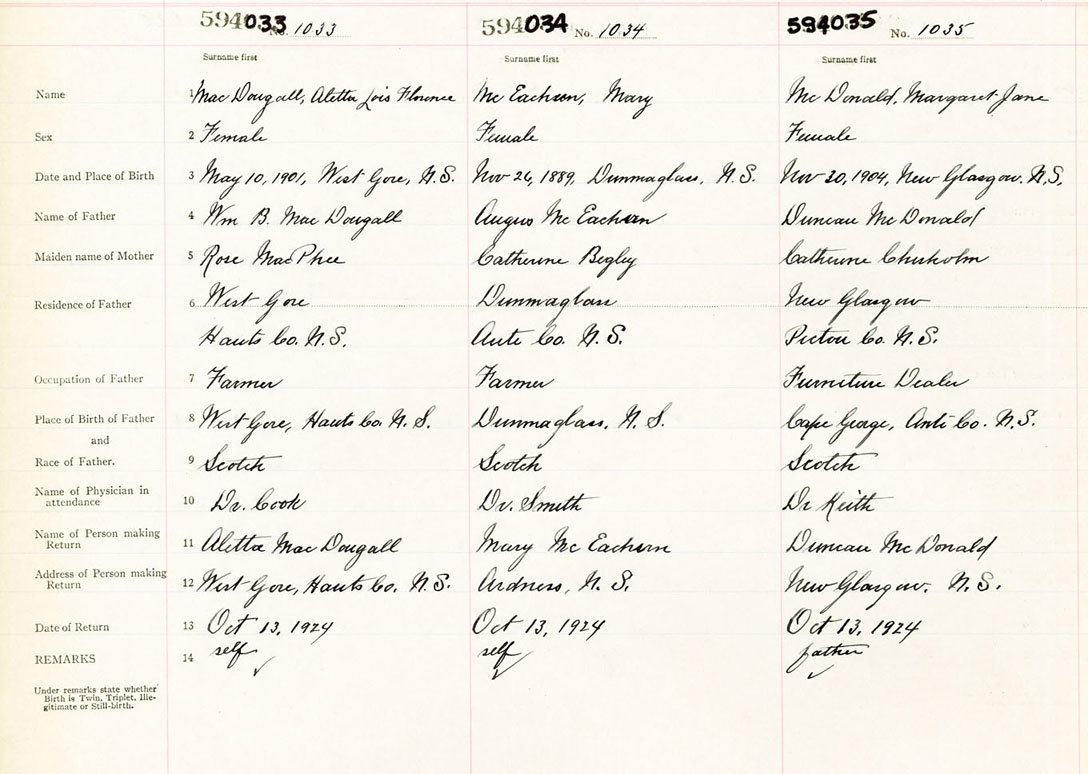 594033 No. 1033 594034 No. 1034 594035 No. 1035
Surname first Surname first Surname first
Name 1 MacDougall, Aletta Lois Florence McEachern, Mary McDonald, Margaret Jane
Sex 2 Female Female Female
Date and Place of Birth 3 May 10, 1901, West Gore, N.S. Nov 26, 1889, Dunmaglass, N.S. Nov 30, 1904, New Glasgow, N.S.
Name of Father 4 Wm B. MacDougall Angus McEachern Duncan McDonald
Maiden name of Mother 5 Rose MacPhee Catherine Begley Catherine Chisholm
Residence of Father 6 West Gore Dunmaglass New Glasgow
Hants Co. N.S. Anti Co. N.S. Pictou Co. N.S.
Occupation of Father 7 Farmer Farmer Furniture Dealer
Place of Birth of Father 8 West Gore, Hants Co. N.S. Dunmaglass, N.S. Cape George, Anti Co. N.S.
and
Race of Father. 9 Scotch Scotch Scotch
Name of Physician in attendance 10 Dr. Cook Dr. Smith Dr Keith
Name of Person making Return 11 Aletta MacDougall Mary McEachern Duncan McDonald
Address of Person making Return 12 West Gore, Hants Co. N.S. Ardness, N.S. New Glasgow. N.S.
Date of Return 13 Oct 13, 1924 Oct 13, 1924 Oct 13, 1924
REMARKS 14 self self father
Under remarks state whether
Birth is Twin, Triplet, Ille-
gitimate or Still-birth.